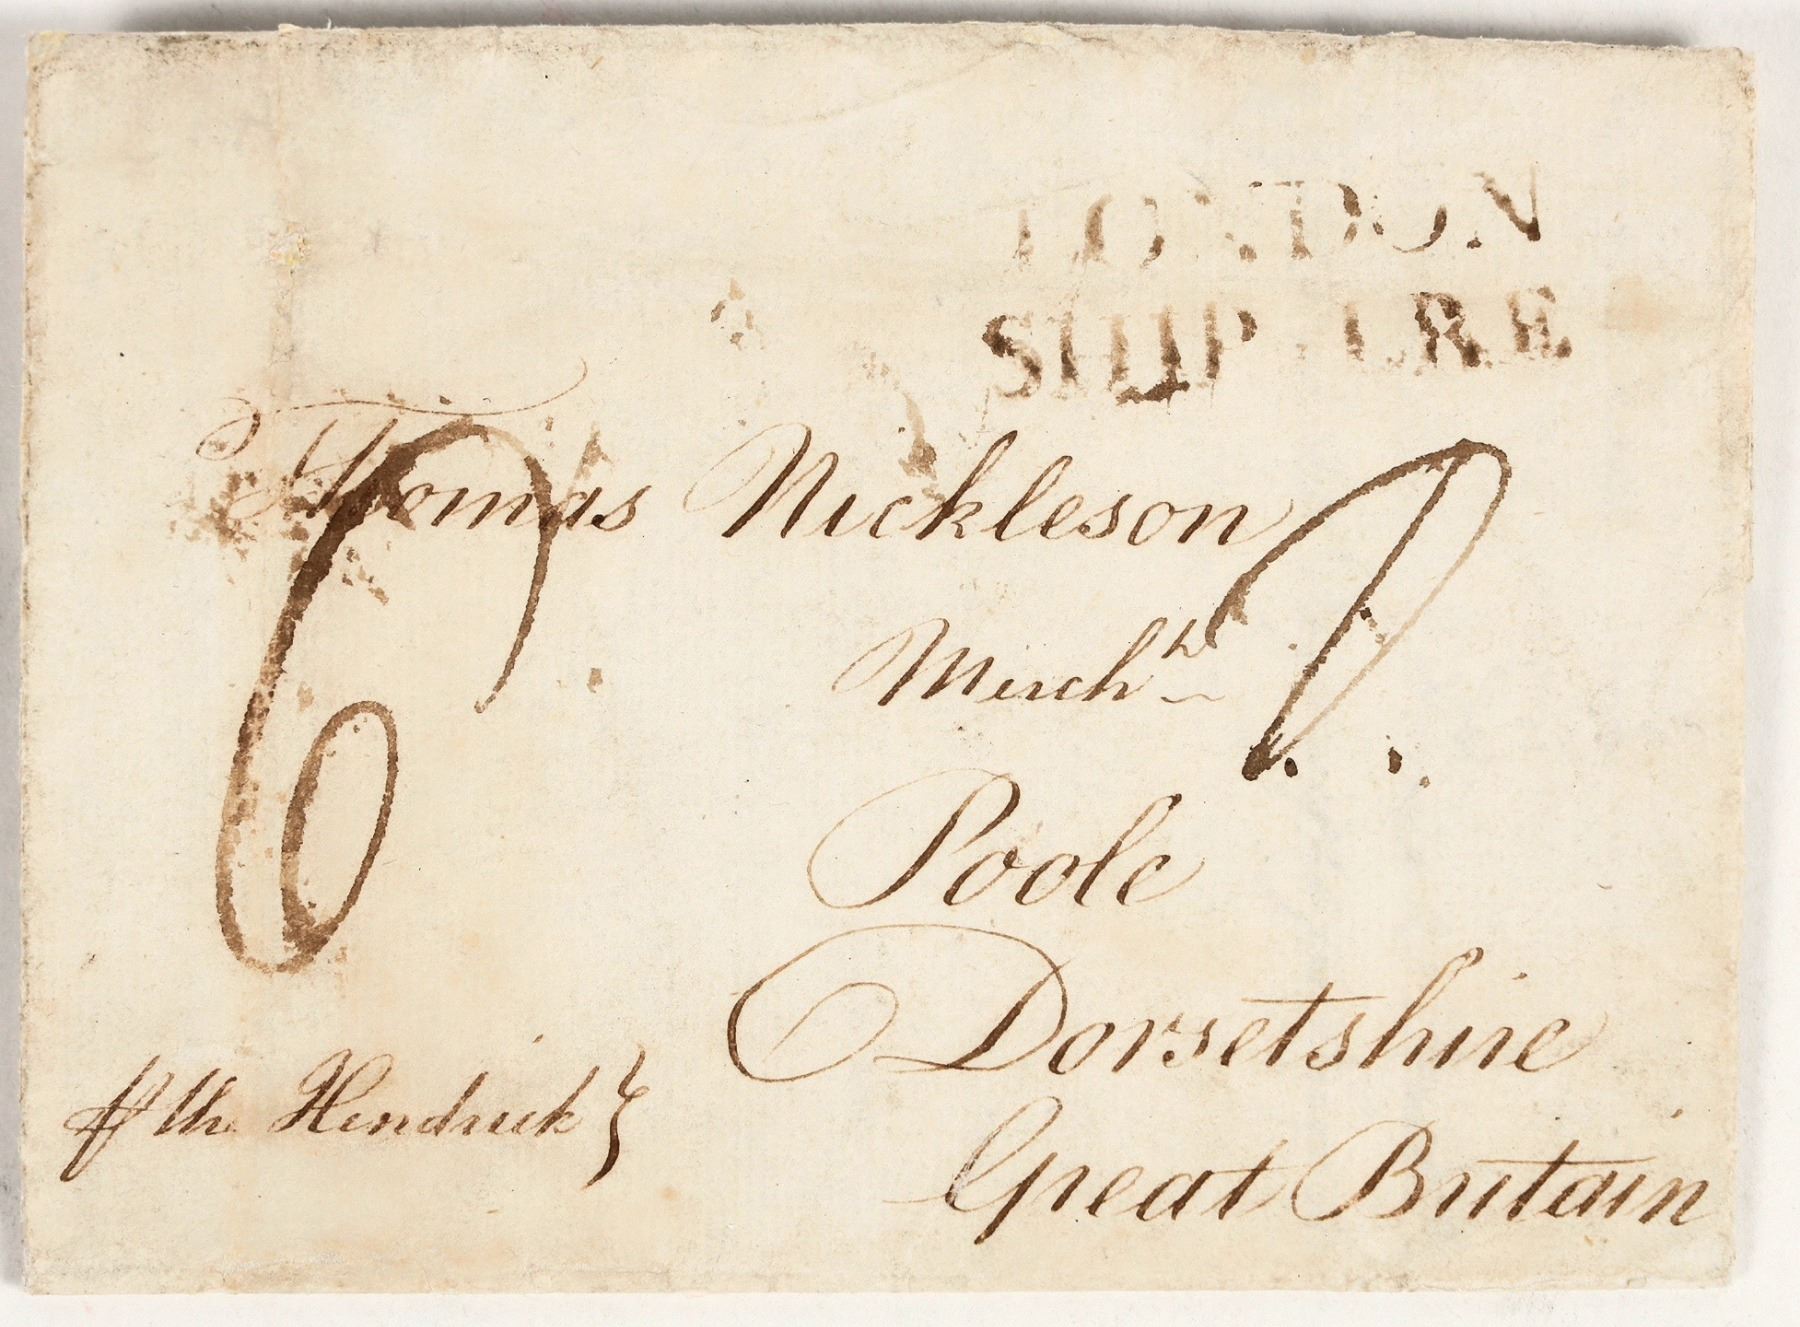 LONDON
SHIP LRE
Thomas Nickleson
Merch^t
Poole
Dorsetshire
Great Britain
the Hendrick
6